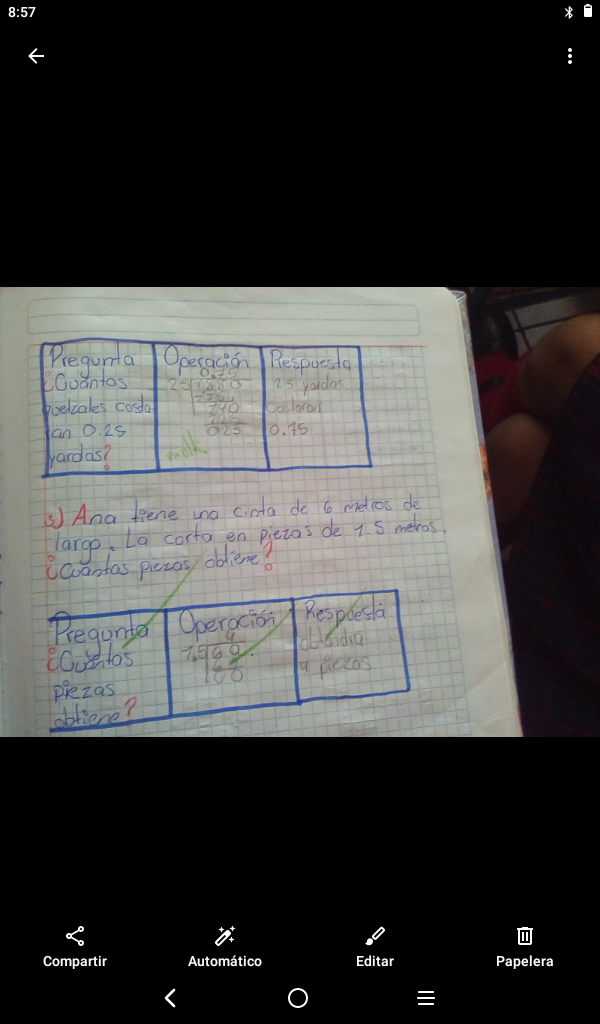 8:57
Pregunta Operación Respuesta
¿Cuántos
quetzales costa
ran 0.25
yardas?
0.75
25 yardas
costaran
0.75
multi.
3) Ana tiene una cinta de 6 metros de
largo. La corta en piezas de 1.5 metros.
¿Cuántas piezas obtiene?
Pregunta Operación Respuesta
¿Cuántos
piezas
obtiene?
4
1.5 60.
60
obtendria
4 piezas
Compartir Automático Editar Papelera